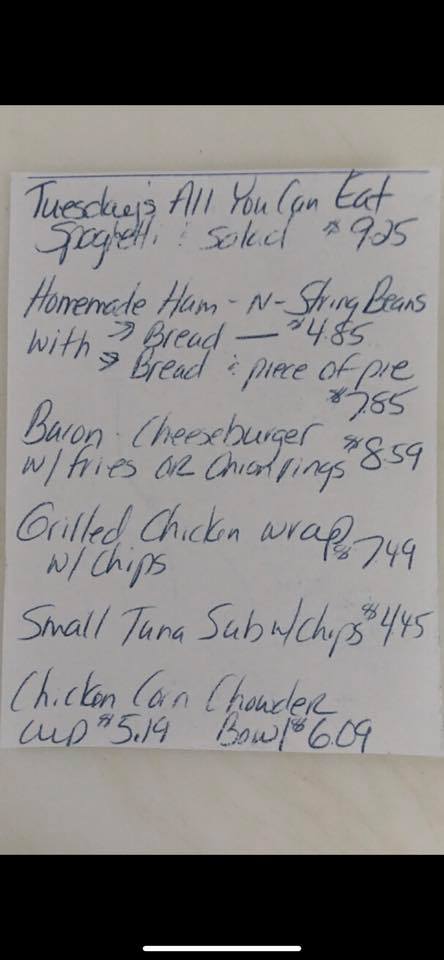 Tuesday's All You Can Eat
Spaghetti & Salad $9.25
Homemade Ham-N-String Beans
with → Bread — $4.85
→ Bread & piece of pie
$7.85
Bacon Cheeseburger
w/ fries OR Onion rings $8.59
Grilled Chicken wrap
w/ Chips $7.49
Small Tuna Sub w/ Chips $4.45
Chicken Corn Chowder
cup $5.19 Bowl $6.09